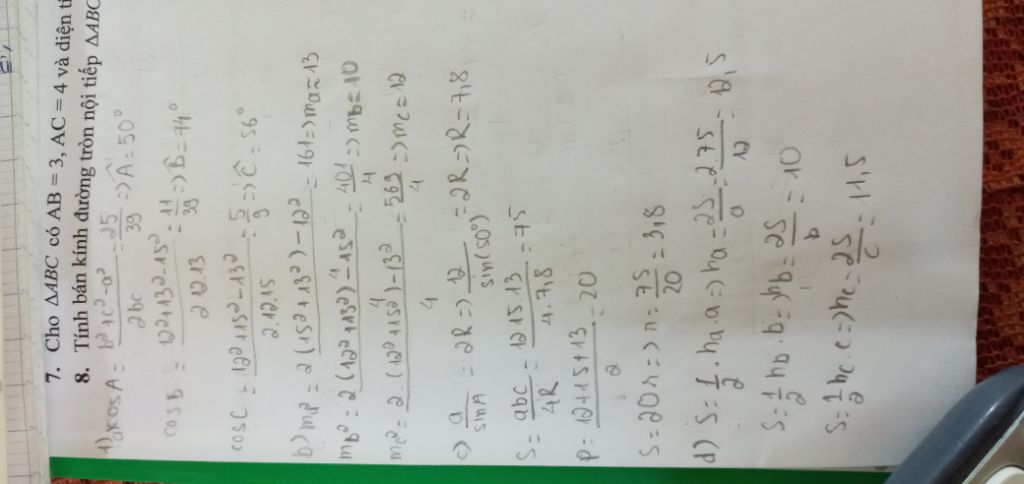 7. Cho ΔABC có AB = 3, AC = 4 và diện t
8. Tính bán kính đường tròn nội tiếp ΔABC
1) a) cosA = b²+c²-a² / 2bc = 25/39 => Â = 50°
cosB = 12²+13²-15² / 2.12.13 = 11/39 => B̂ = 74°
cosC = 12²+15²-13² / 2.12.15 = 5/9 => Ĉ = 56°
b) ma² = 2(15²+13²)-12² / 4 = 161 => ma = 13
mb² = 2(12²+13²)-15² / 4 = 401/4 => mb = 10
mc² = 2.(12²+15²)-13² / 4 = 569/4 => mc = 12
c) a/sinA = 2R => 12/sin(50°) = 2R => R = 7,8
S = abc/4R = 12.15.13 / 4.7,8 = 75
p = 12+15+13 / 2 = 20
S = 20r => r = 75/20 = 3,8
d) S = 1/2 . ha.a => ha = 2S/a = 2.75/12 = 12,5
S = 1/2 hb.b => hb = 2S/b = 10
S = 1/2 hc.c => hc = 2S/c = 11,5